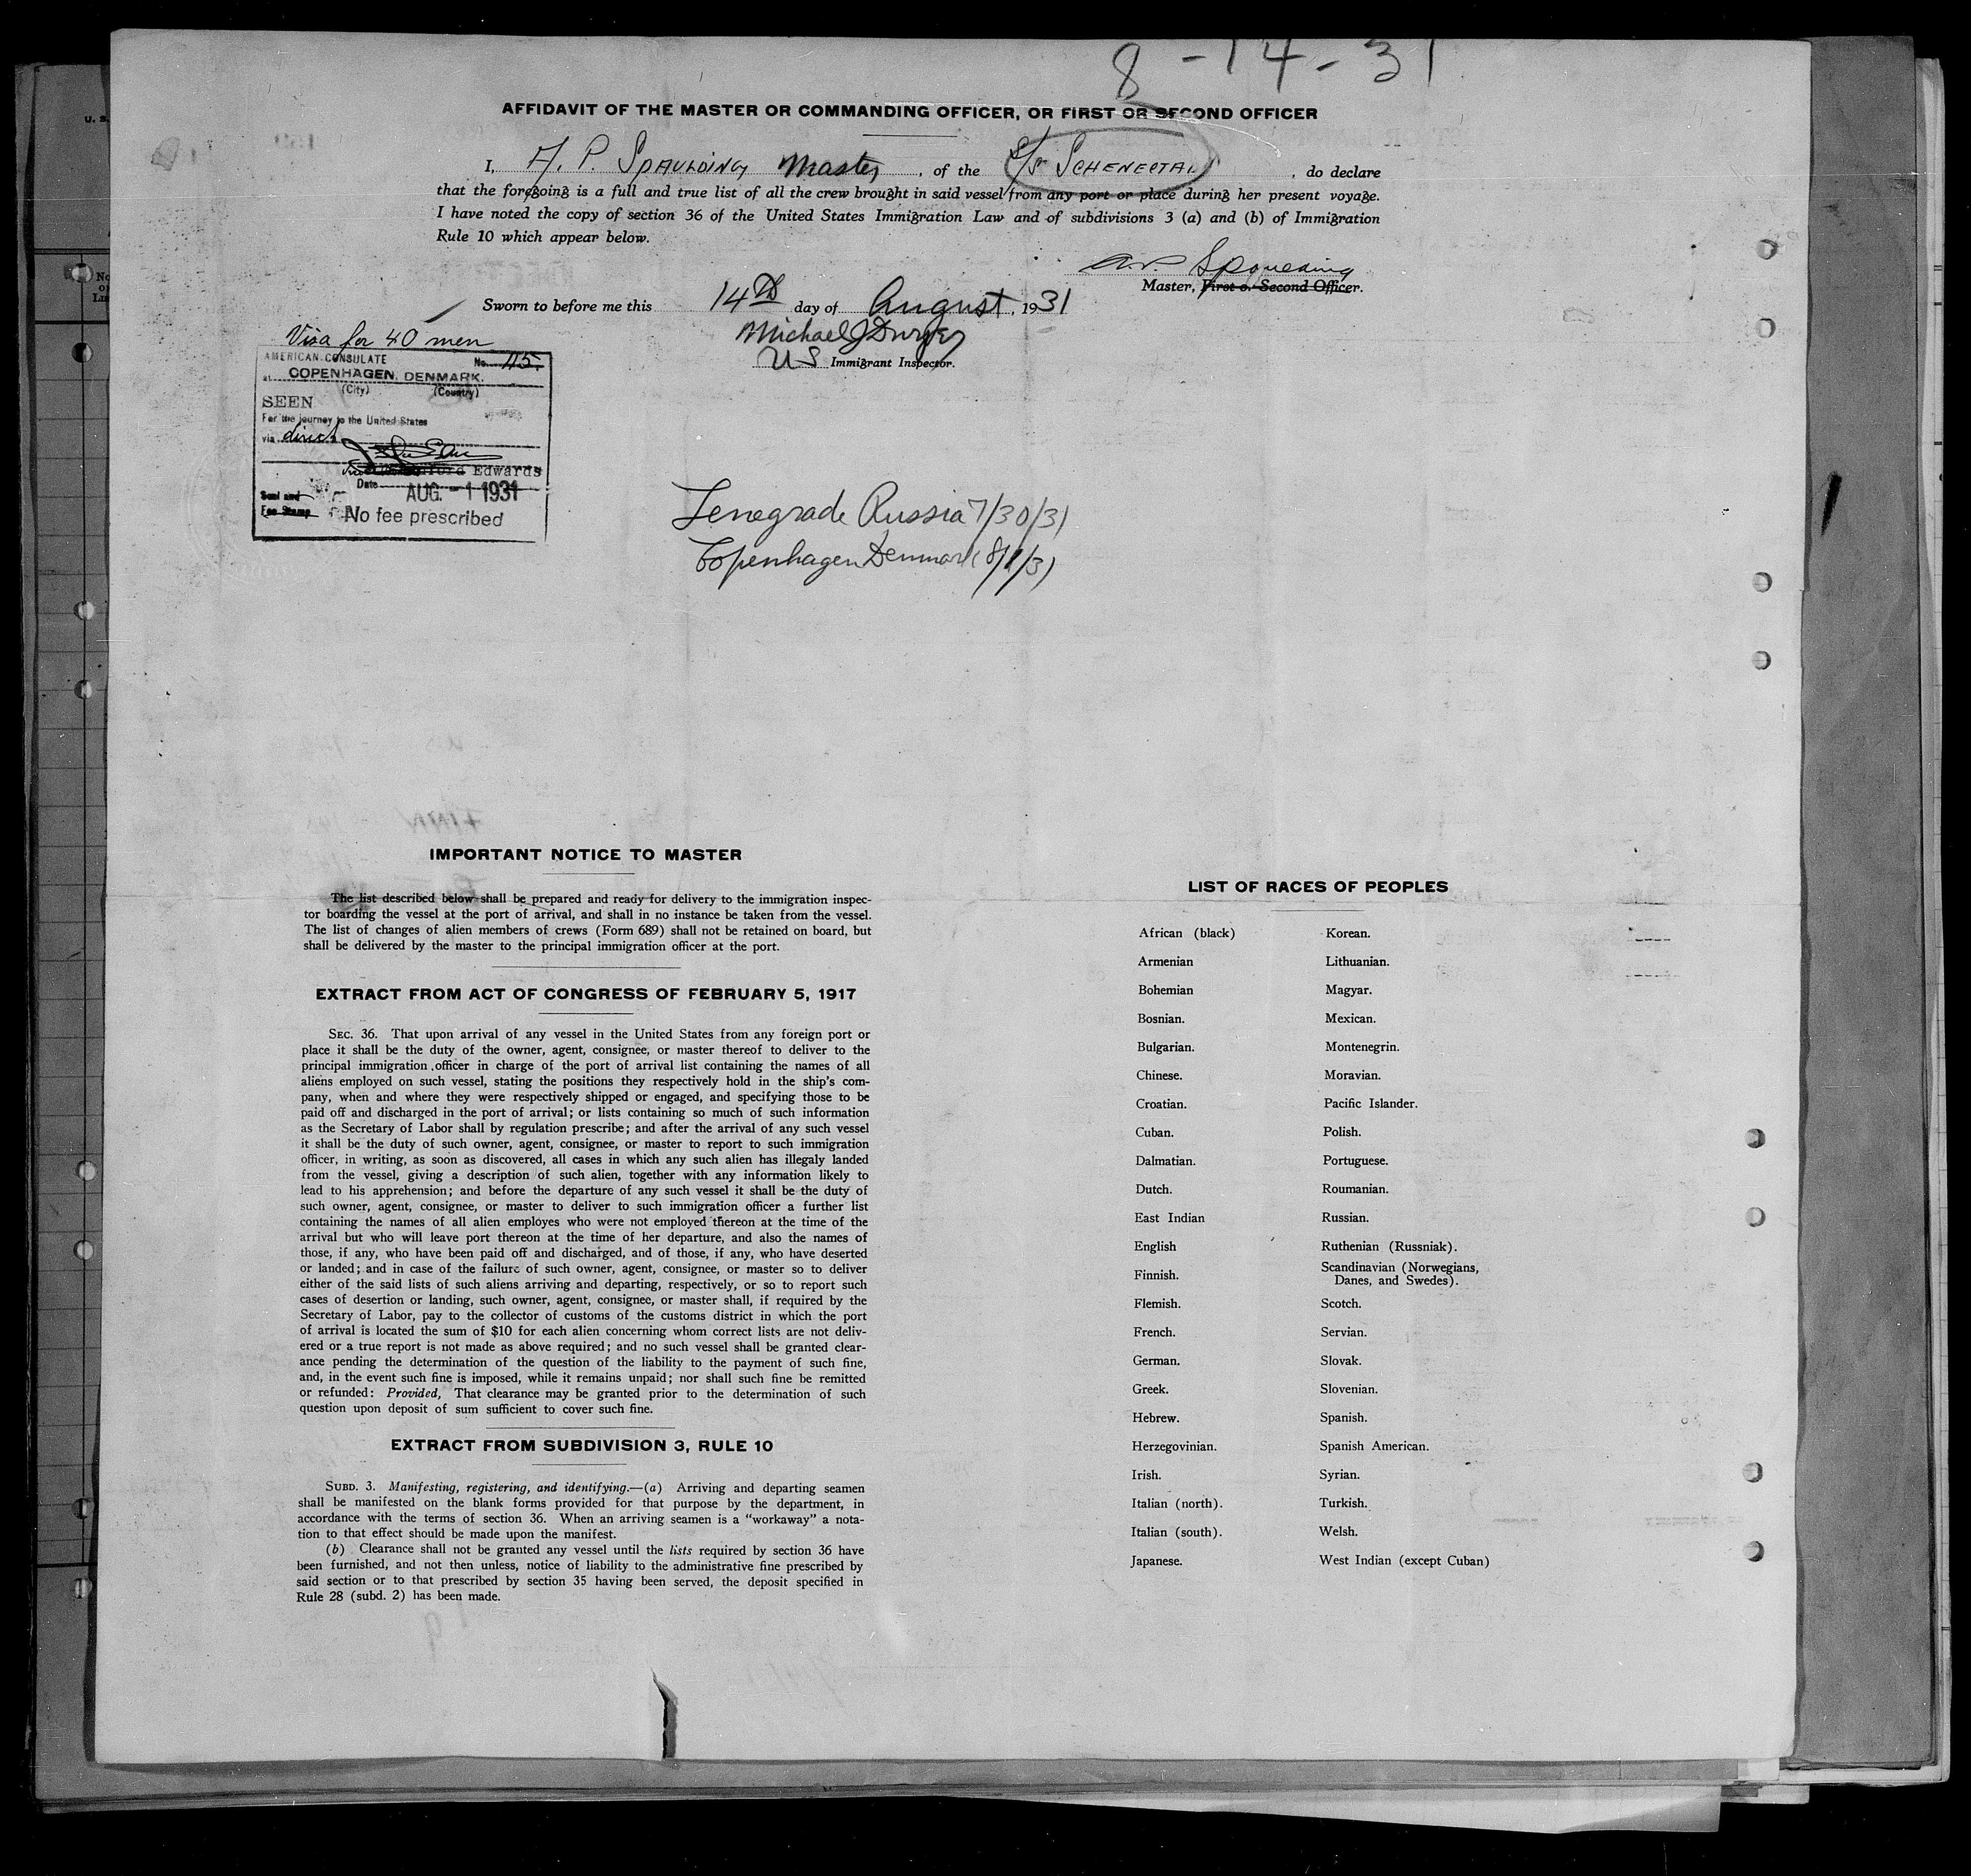 8-14-31
AFFIDAVIT OF THE MASTER OR COMMANDING OFFICER, OR FIRST OR SECOND OFFICER
I, A. P. SPAULDING Master, of the S/S SCHENECTADY, do declare
that the foregoing is a full and true list of all the crew brought in said vessel from any port or place during her present voyage.
I have noted the copy of section 36 of the United States Immigration Law and of subdivisions 3 (a) and (b) of Immigration
Rule 10 which appear below.
A.P. Spaulding
Master, First or Second Officer.
Sworn to before me this 14th day of August, 1931
Michael J
US Immigrant Inspector.
Visa for 40 men
AMERICAN CONSULATE No. 115.
at COPENHAGEN, DENMARK.
(City) (Country)
SEEN
For the journey to the United States
via direct
Edwards
Date AUG -1 1931
Seal and
Fee Stamp No fee prescribed
Lenegrade Russia 7/30/31
Copenhagen Denmark 8/1/31
IMPORTANT NOTICE TO MASTER
The list described below shall be prepared and ready for delivery to the immigration inspec-
tor boarding the vessel at the port of arrival, and shall in no instance be taken from the vessel.
The list of changes of alien members of crews (Form 689) shall not be retained on board, but
shall be delivered by the master to the principal immigration officer at the port.
EXTRACT FROM ACT OF CONGRESS OF FEBRUARY 5, 1917
SEC. 36. That upon arrival of any vessel in the United States from any foreign port or
place it shall be the duty of the owner, agent, consignee, or master thereof to deliver to the
principal immigration officer in charge of the port of arrival list containing the names of all
aliens employed on such vessel, stating the positions they respectively hold in the ship's com-
pany, when and where they were respectively shipped or engaged, and specifying those to be
paid off and discharged in the port of arrival; or lists containing so much of such information
as the Secretary of Labor shall by regulation prescribe; and after the arrival of any such vessel
it shall be the duty of such owner, agent, consignee, or master to report to such immigration
officer, in writing, as soon as discovered, all cases in which any such alien has illegaly landed
from the vessel, giving a description of such alien, together with any information likely to
lead to his apprehension; and before the departure of any such vessel it shall be the duty of
such owner, agent, consignee, or master to deliver to such immigration officer a further list
containing the names of all alien employes who were not employed thereon at the time of the
arrival but who will leave port thereon at the time of her departure, and also the names of
those, if any, who have been paid off and discharged, and of those, if any, who have deserted
or landed; and in case of the failure of such owner, agent, consignee, or master so to deliver
either of the said lists of such aliens arriving and departing, respectively, or so to report such
cases of desertion or landing, such owner, agent, consignee, or master shall, if required by the
Secretary of Labor, pay to the collector of customs of the customs district in which the port
of arrival is located the sum of $10 for each alien concerning whom correct lists are not deliv-
ered or a true report is not made as above required; and no such vessel shall be granted clear-
ance pending the determination of the question of the liability to the payment of such fine,
and, in the event such fine is imposed, while it remains unpaid; nor shall such fine be remitted
or refunded: Provided, That clearance may be granted prior to the determination of such
question upon deposit of sum sufficient to cover such fine.
EXTRACT FROM SUBDIVISION 3, RULE 10
SUBD. 3. Manifesting, registering, and identifying.—(a) Arriving and departing seamen
shall be manifested on the blank forms provided for that purpose by the department, in
accordance with the terms of section 36. When an arriving seamen is a "workaway" a nota-
tion to that effect should be made upon the manifest.
(b) Clearance shall not be granted any vessel until the lists required by section 36 have
been furnished, and not then unless, notice of liability to the administrative fine prescribed by
said section or to that prescribed by section 35 having been served, the deposit specified in
Rule 28 (subd. 2) has been made.
LIST OF RACES OF PEOPLES
African (black) Korean.
Armenian Lithuanian.
Bohemian Magyar.
Bosnian. Mexican.
Bulgarian. Montenegrin.
Chinese. Moravian.
Croatian. Pacific Islander.
Cuban. Polish.
Dalmatian. Portuguese.
Dutch. Roumanian.
East Indian Russian.
English Ruthenian (Russniak).
Finnish. Scandinavian (Norwegians,
Danes, and Swedes).
Flemish. Scotch.
French. Servian.
German. Slovak.
Greek. Slovenian.
Hebrew. Spanish.
Herzegovinian. Spanish American.
Irish. Syrian.
Italian (north). Turkish.
Italian (south). Welsh.
Japanese. West Indian (except Cuban)